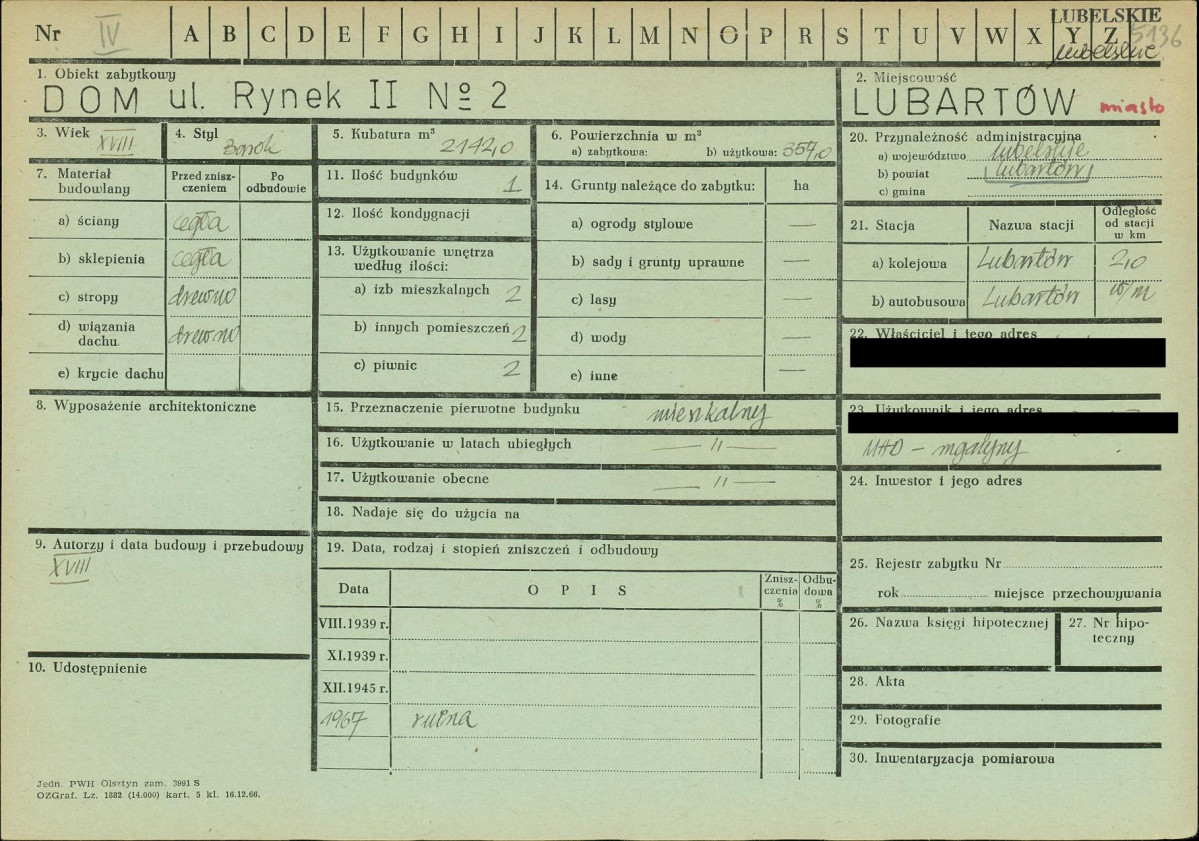 Nr IV A B C D E F G H I J K L M N O P R S T U V W X Y Z
LUBELSKIE
5136
lubelskie
1. Obiekt zabytkowy
DOM ul. Rynek II No 2
2. Miejscowość
LUBARTÓW miasto
3. Wiek XVIII
4. Styl barok
5. Kubatura m³ 2142,0
6. Powierzchnia w m²
a) zabytkowa: b) użytkowa: 357,0
7. Materiał budowlany
Przed zniszczeniem
Po odbudowie
a) ściany cegła
b) sklepienia cegła
c) stropy drewno
d) wiązania dachu drewno
e) krycie dachu
8. Wyposażenie architektoniczne
9. Autorzy i data budowy i przebudowy
XVIII
10. Udostępnienie
11. Ilość budynków 1
12. Ilość kondygnacji
13. Użytkowanie wnętrza według ilości:
a) izb mieszkalnych 2
b) innych pomieszczeń 2
c) piwnic 2
14. Grunty należące do zabytku: ha
a) ogrody stylowe —
b) sady i grunty uprawne —
c) lasy —
d) wody —
e) inne —
15. Przeznaczenie pierwotne budynku mieszkalny
16. Użytkowanie w latach ubiegłych — " —
17. Użytkowanie obecne — " —
18. Nadaje się do użycia na
19. Data, rodzaj i stopień zniszczeń i odbudowy
Data OPIS Zniszczenia % Odbudowa %
VIII.1939 r.
XI.1939 r.
XII.1945 r.
1967 ruina
20. Przynależność administracyjna
a) województwo lubelskie
b) powiat lubartów
c) gmina
21. Stacja Nazwa stacji Odległość od stacji w km
a) kolejowa Lubartów 2,0
b) autobusowa Lubartów w/m
22. Właściciel i jego adres
23. Użytkownik i jego adres
24. Inwestor i jego adres
25. Rejestr zabytku Nr
rok miejsce przechowywania
26. Nazwa księgi hipotecznej
27. Nr hipoteczny
28. Akta
29. Fotografie
30. Inwentaryzacja pomiarowa
Jedn. PWH Olsztyn zam. 3991 S
OZGraf. Lz. 1882 (14.000) kart. 5 kl. 16.12.66.